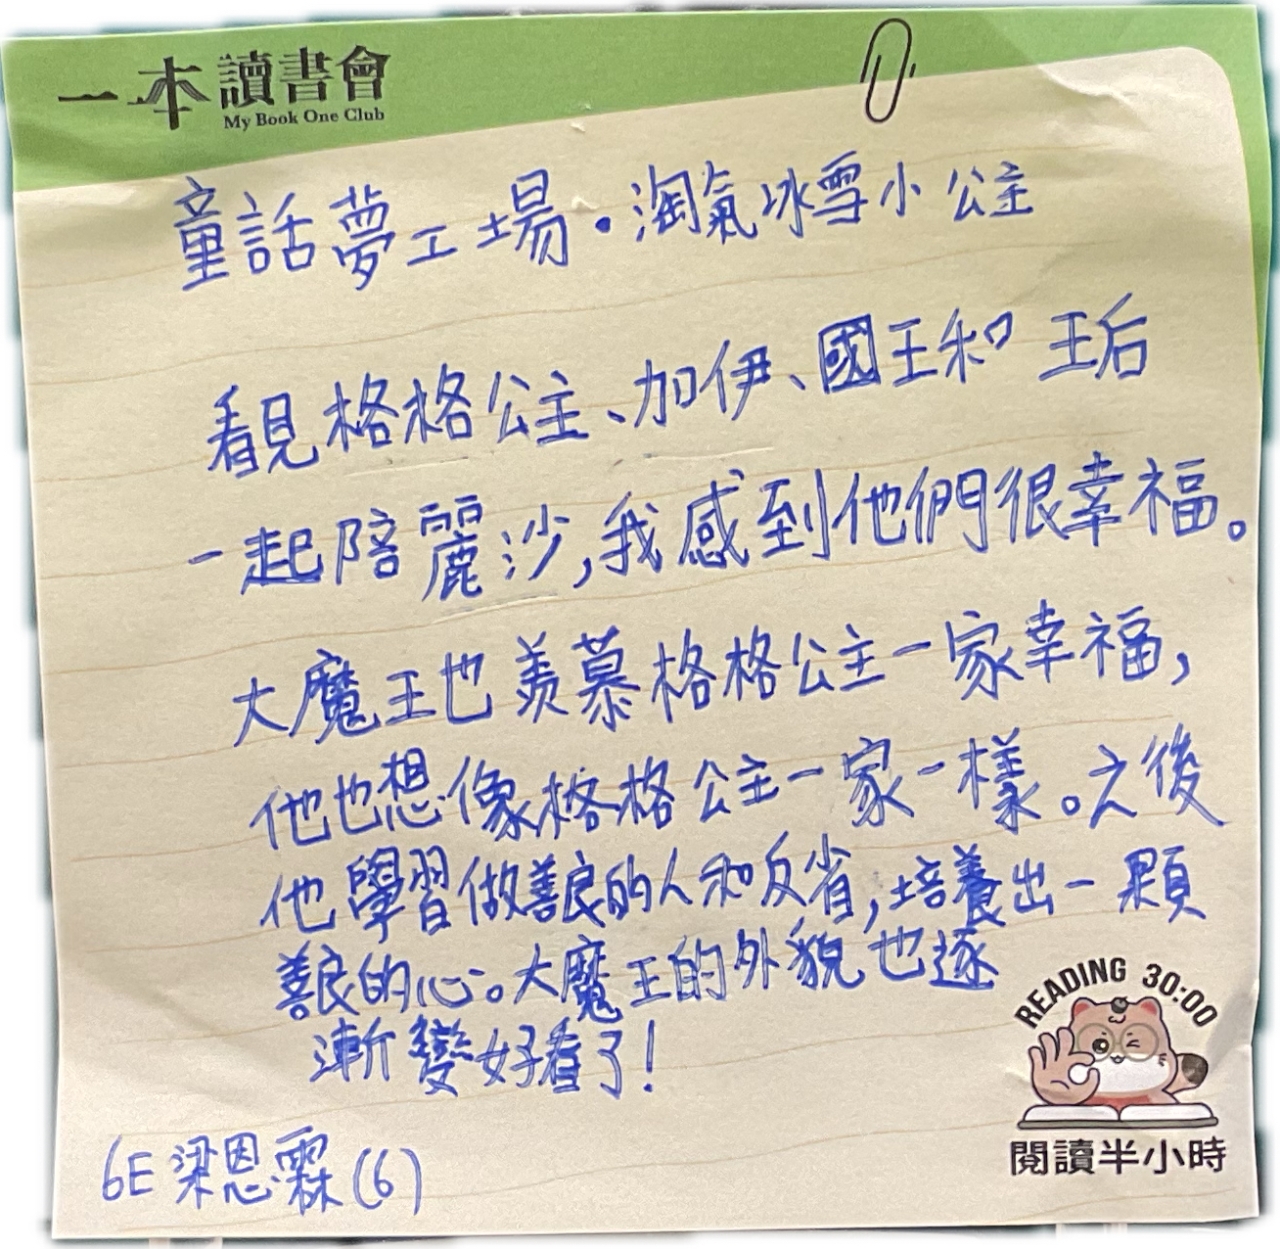 一本讀書會
My Book One Club
童話夢工場·淘氣冰雪小公主
看見格格公主、加伊、國王和王后
一起陪麗沙,我感到他們很幸福。
大魔王也羨慕格格公主一家幸福,
他也想像格格公主一家一樣。之後
他學習做善良的人和反省,培養出一顆
善良的心。大魔王的外貌也逐
漸變好看了!
READING 30:00
閱讀半小時
6E 梁恩霖(6)